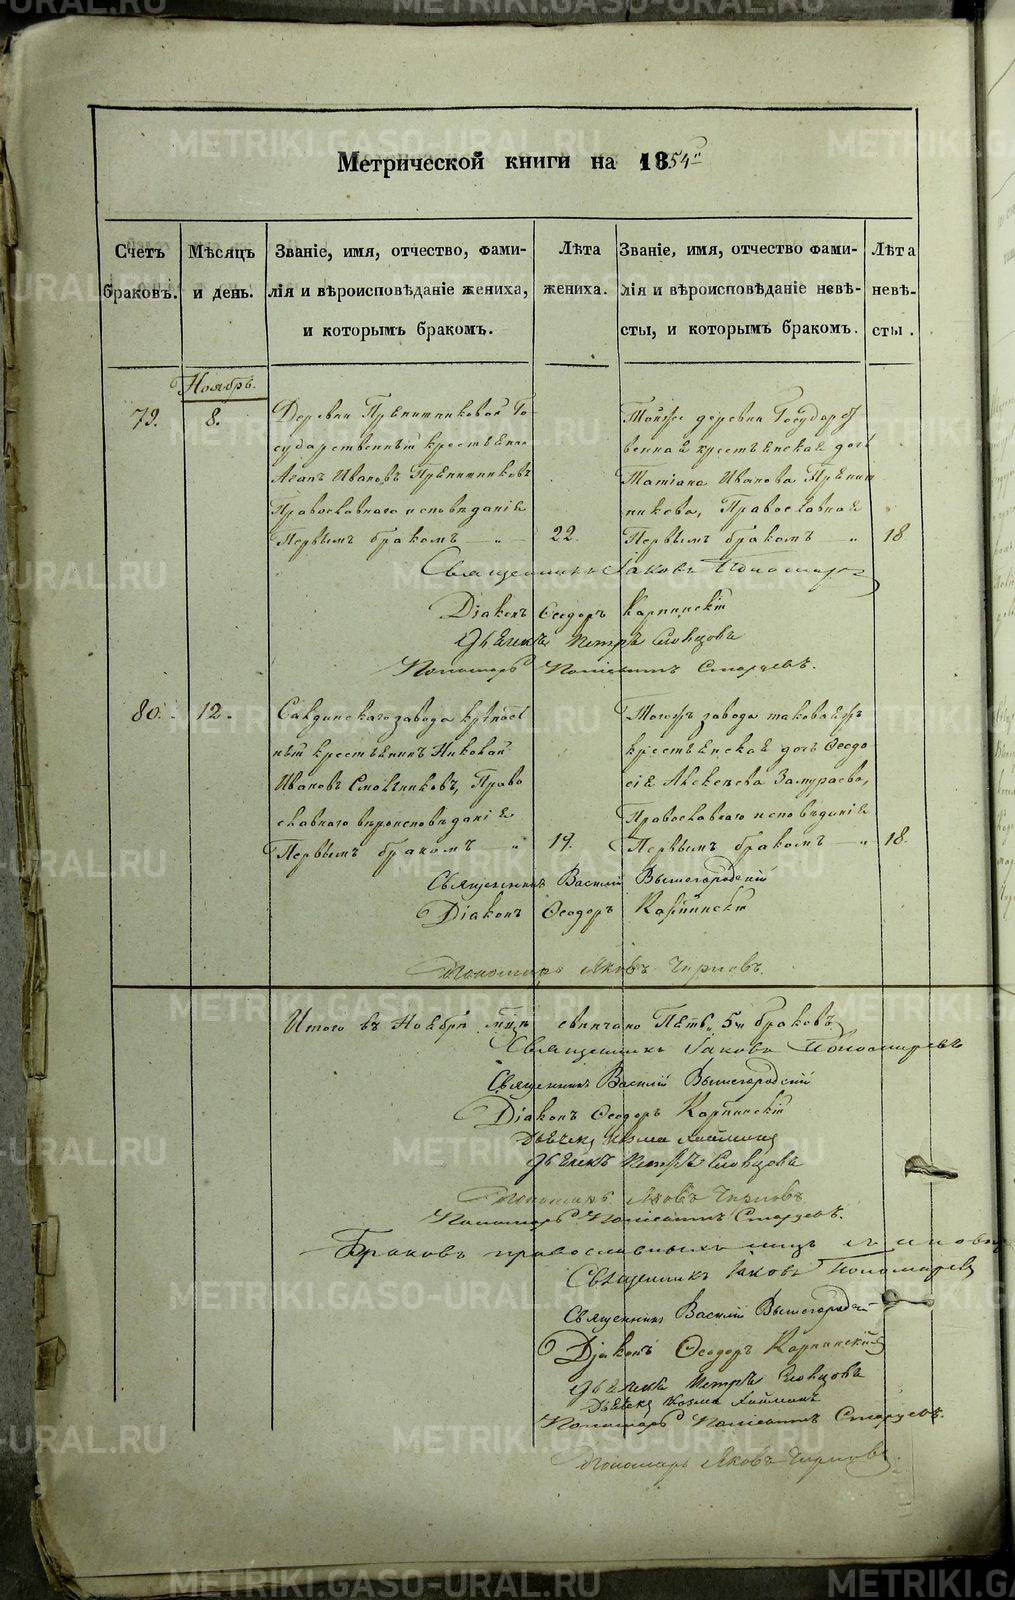 Метрической книги на 1854й
Счетъ
браковъ.
Мѣсяцъ
и день.
Званіе, имя, отчество, фами-
лія и вѣроисповѣданіе жениха,
и которымъ бракомъ.
Лѣта
жениха.
Званіе, имя, отчество фами-
лія и вѣроисповѣданіе невѣ-
сты, и которымъ бракомъ.
Лѣта
невѣ-
сты.
Ноябрь.
79.
8.
Деревни Прянишниковой Го-
сударственный крестьянинъ
Иванъ Прянишниковъ
Православнаго исповѣданія
Первымъ бракомъ
22.
Тойже деревни Государст
венная крестьянская дочь
Татіана Иванова Прянишни
никова, Православная
Первымъ бракомъ
18
Священникъ Іаковъ Пономаревъ
Діаконъ Ѳеодоръ Карпинскій
Дьячекъ Петръ Словцовъ
Пономарь Старцевъ.
80.
12.
Салдинскаго завода крѣпост
ный крестьянинъ Николай
Ивановъ Право
славнаго вѣроисповѣданія
Первымъ бракомъ
19.
Тогожъ завода таковаяжъ
крестьянская дочь Ѳеодо
сія Алексѣева Замураева,
Православнаго исповѣданія
Первымъ бракомъ
18.
Священникъ Василій Вышегородскій
Діаконъ Ѳеодоръ Карпинскій
Пономарь Яковъ Чирковъ
Итого въ Ноябрѣ м-цѣ свѣнчано Пять 5ть браковъ
Священникъ Іаковъ Пономаревъ
Священникъ Василій Вышегородскій
Діаконъ Ѳеодоръ Карпинскій
Дьячекъ Козма
Дьячекъ Петръ Словцовъ
Пономарь Яковъ Чирковъ
Пономарь Старцевъ.
Браковъ православныхъ лицъ съ иновѣр
Священникъ Іаковъ Пономаревъ
Священникъ Василій Вышегородскій
Діаконъ Ѳеодоръ Карпинскій
Дьячекъ Петръ Словцовъ
Дьячекъ Козма
Пономарь Старцевъ.
Пономарь Яковъ Чирковъ.
METRIKI.GASO-URAL.RU